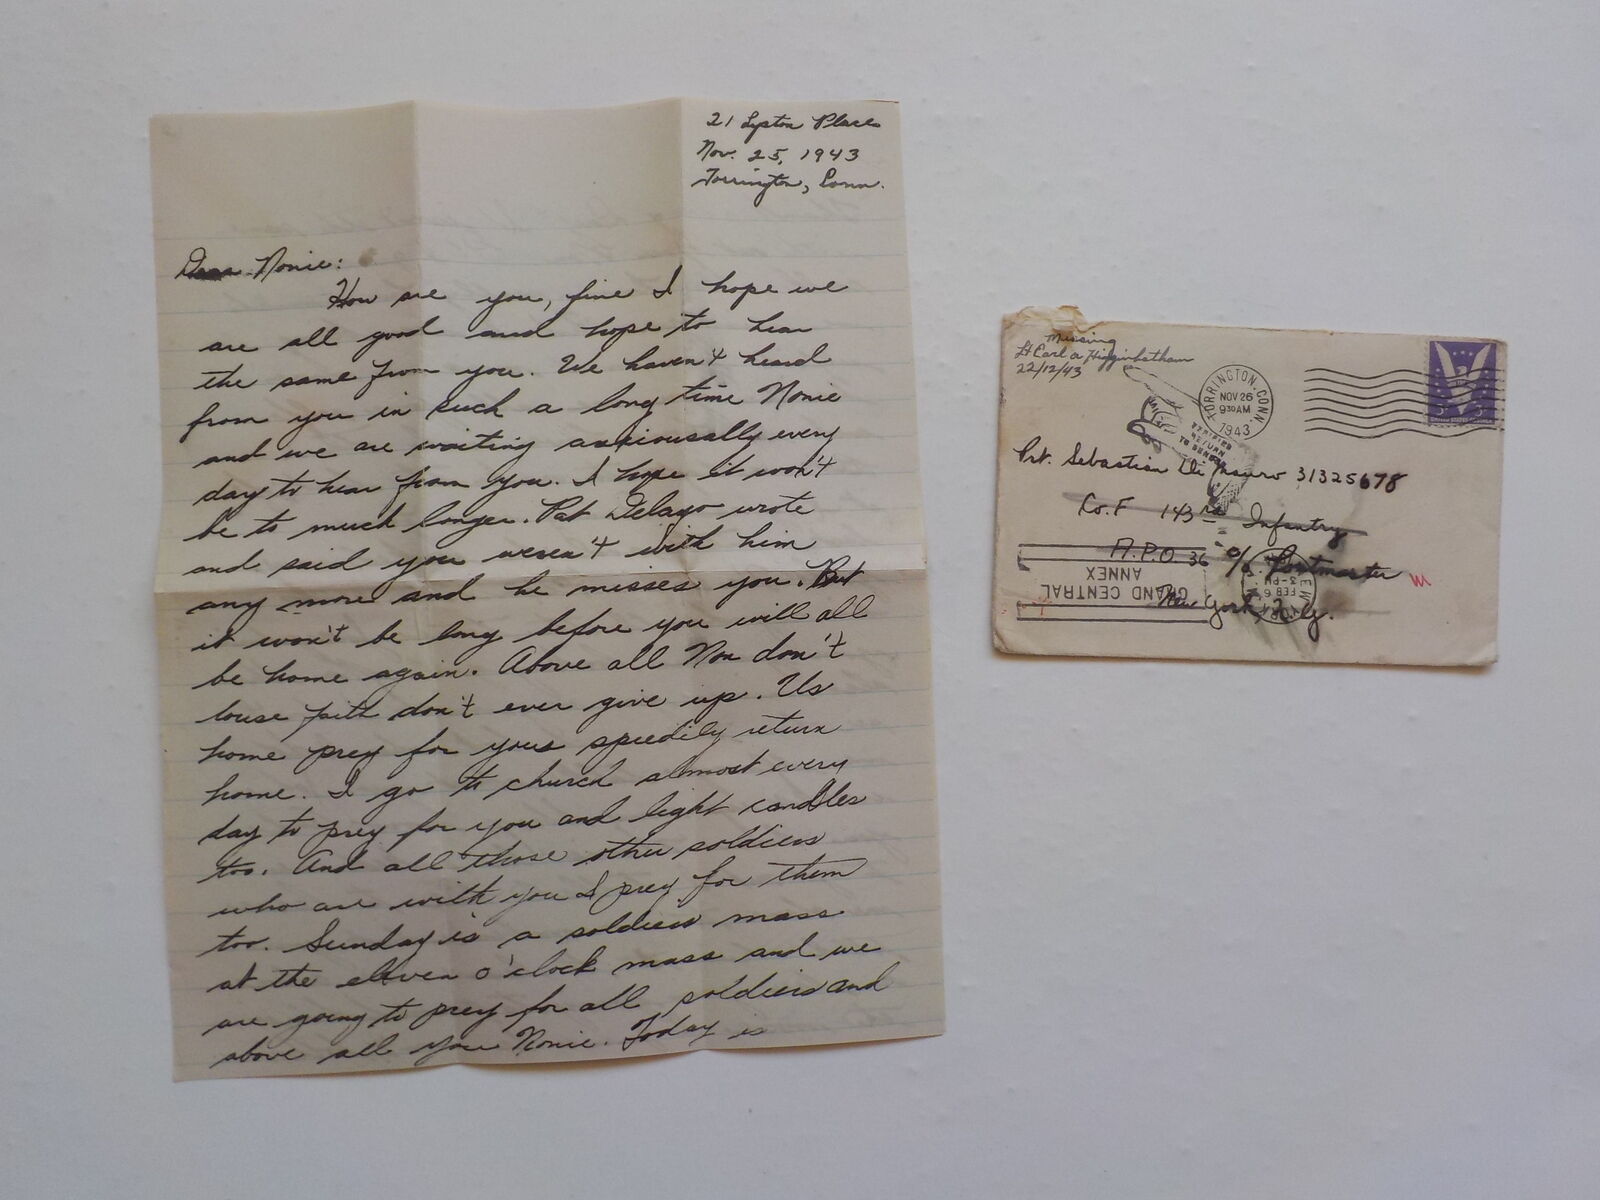 21 Lyston Place
Nov. 25, 1943
Torrington, Conn.
Dear Nonie:
How are you, fine I hope we
are all good and hope to hear
the same from you. We haven't heard
from you in such a long time Nonie
and we are waiting anxiousally every
day to hear from you. I hope it won't
be to much longer. Pat Delayo wrote
and said you weren't with him
any more and he misses you. But
it won't be long before you will all
be home again. Above all Non don't
louse faith don't ever give up. Us
home prey for your speedily return
home. I go to church almost every
day to prey for you and light candles
too. And all those other soldiers
who are with you I prey for them
too. Sunday is a soldiers mass
at the eleven o'clock mass and we
are going to prey for all soldiers and
above all you Nonie. Today is
Missing
Lt Earl A Higginbotham
22/12/43
TORRINGTON, CONN.
NOV 26
9 30 AM
1943
VERIFIED
RETURN
TO SENDER
3¢ 3¢
Pvt. Sebastian Di Mauro 31325678
Co. F 143rd Infantry
A.P.O. 36 c/o Postmaster
New York, N.Y.
M
GRAND CENTRAL
ANNEX
NEW YORK
FEB 6
3-PM